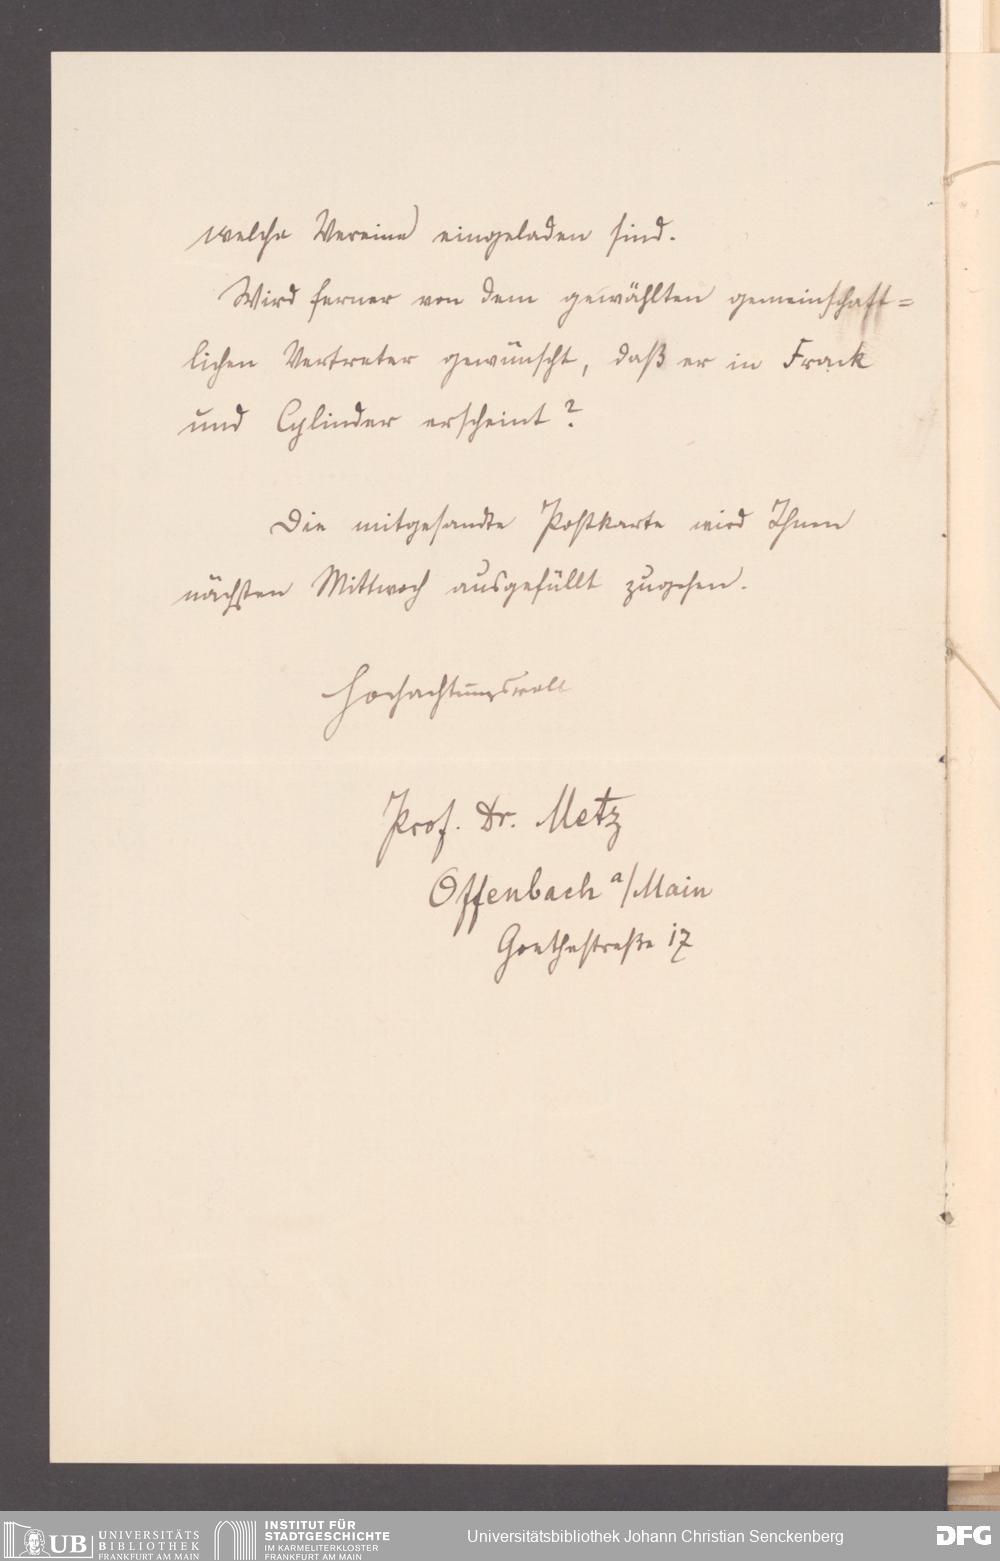 welche Vereine) eingeladen sind.
Wird ferner von dem gewählten gemeinschaft=
lichen Vertreter gewünscht, daß er in Frack
und Cylinder erscheint?
Die mitgesandte Postkarte wird Ihnen
nächsten Mittwoch ausgefüllt zugehen.
Hochachtungsvoll
Prof. Dr. Metz
Offenbach a/Main
Goethestraße 17
UB UNIVERSITÄTS
BIBLIOTHEK
FRANKFURT AM MAIN
INSTITUT FÜR
STADTGESCHICHTE
IM KARMELITERKLOSTER
FRANKFURT AM MAIN
Universitätsbibliothek Johann Christian Senckenberg
DFG